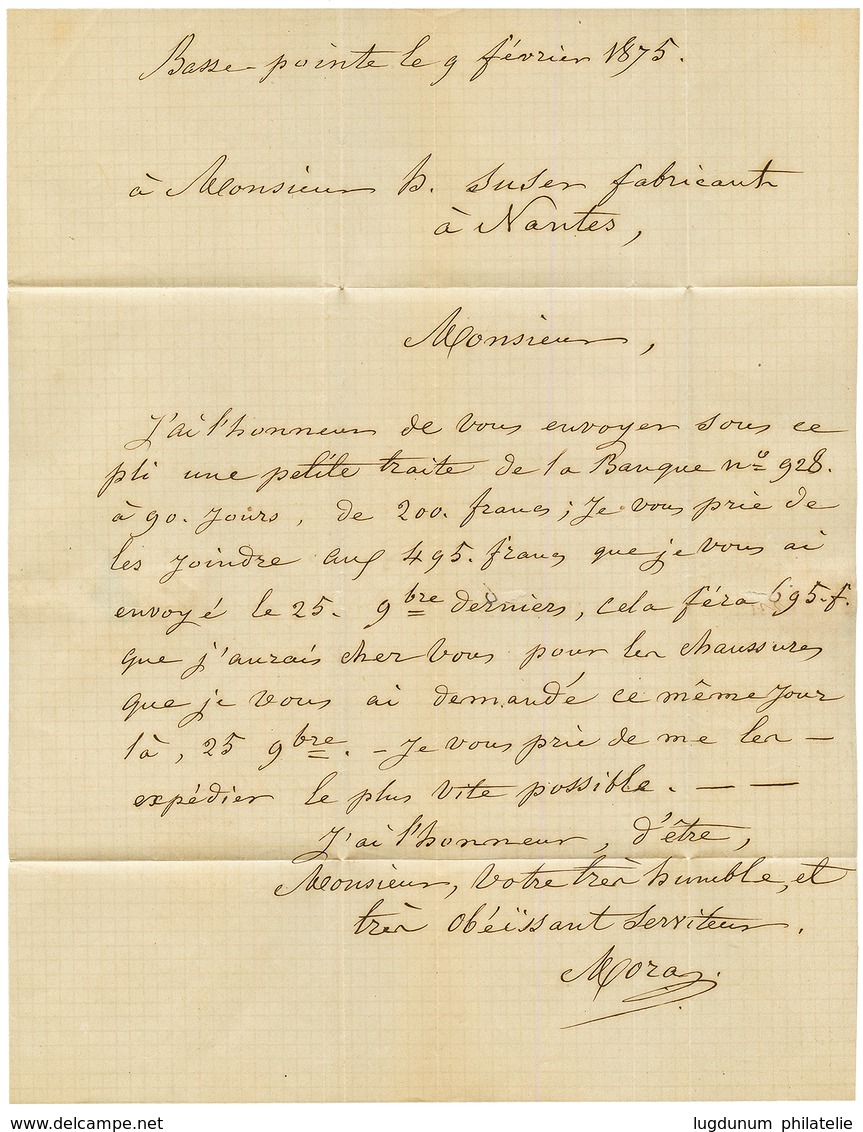 Basse-pointe le 9 février 1875.
à Monsieur h. Suser fabricant
à Nantes,
Monsieur,
J'ai l'honneur de vous envoyer sous ce
pli une petite traite de la Banque n° 928.
à 90. Jours, de 200. francs; Je vous prie de
les joindre aux 495. francs que je vous ai
envoyé le 25. 9bre derniers, cela féra 695.f.
que j'aurais cher vous pour les chaussures
que je vous ai demandé ce même Jour
là, 25 9bre. - Je vous prie de me les -
expédier le plus vite possible. - -
J'ai l'honneur, d'être,
Monsieur, votre très humble, et
très obéïssant serviteur.
www.delcampe.net
lugdunum philatelie